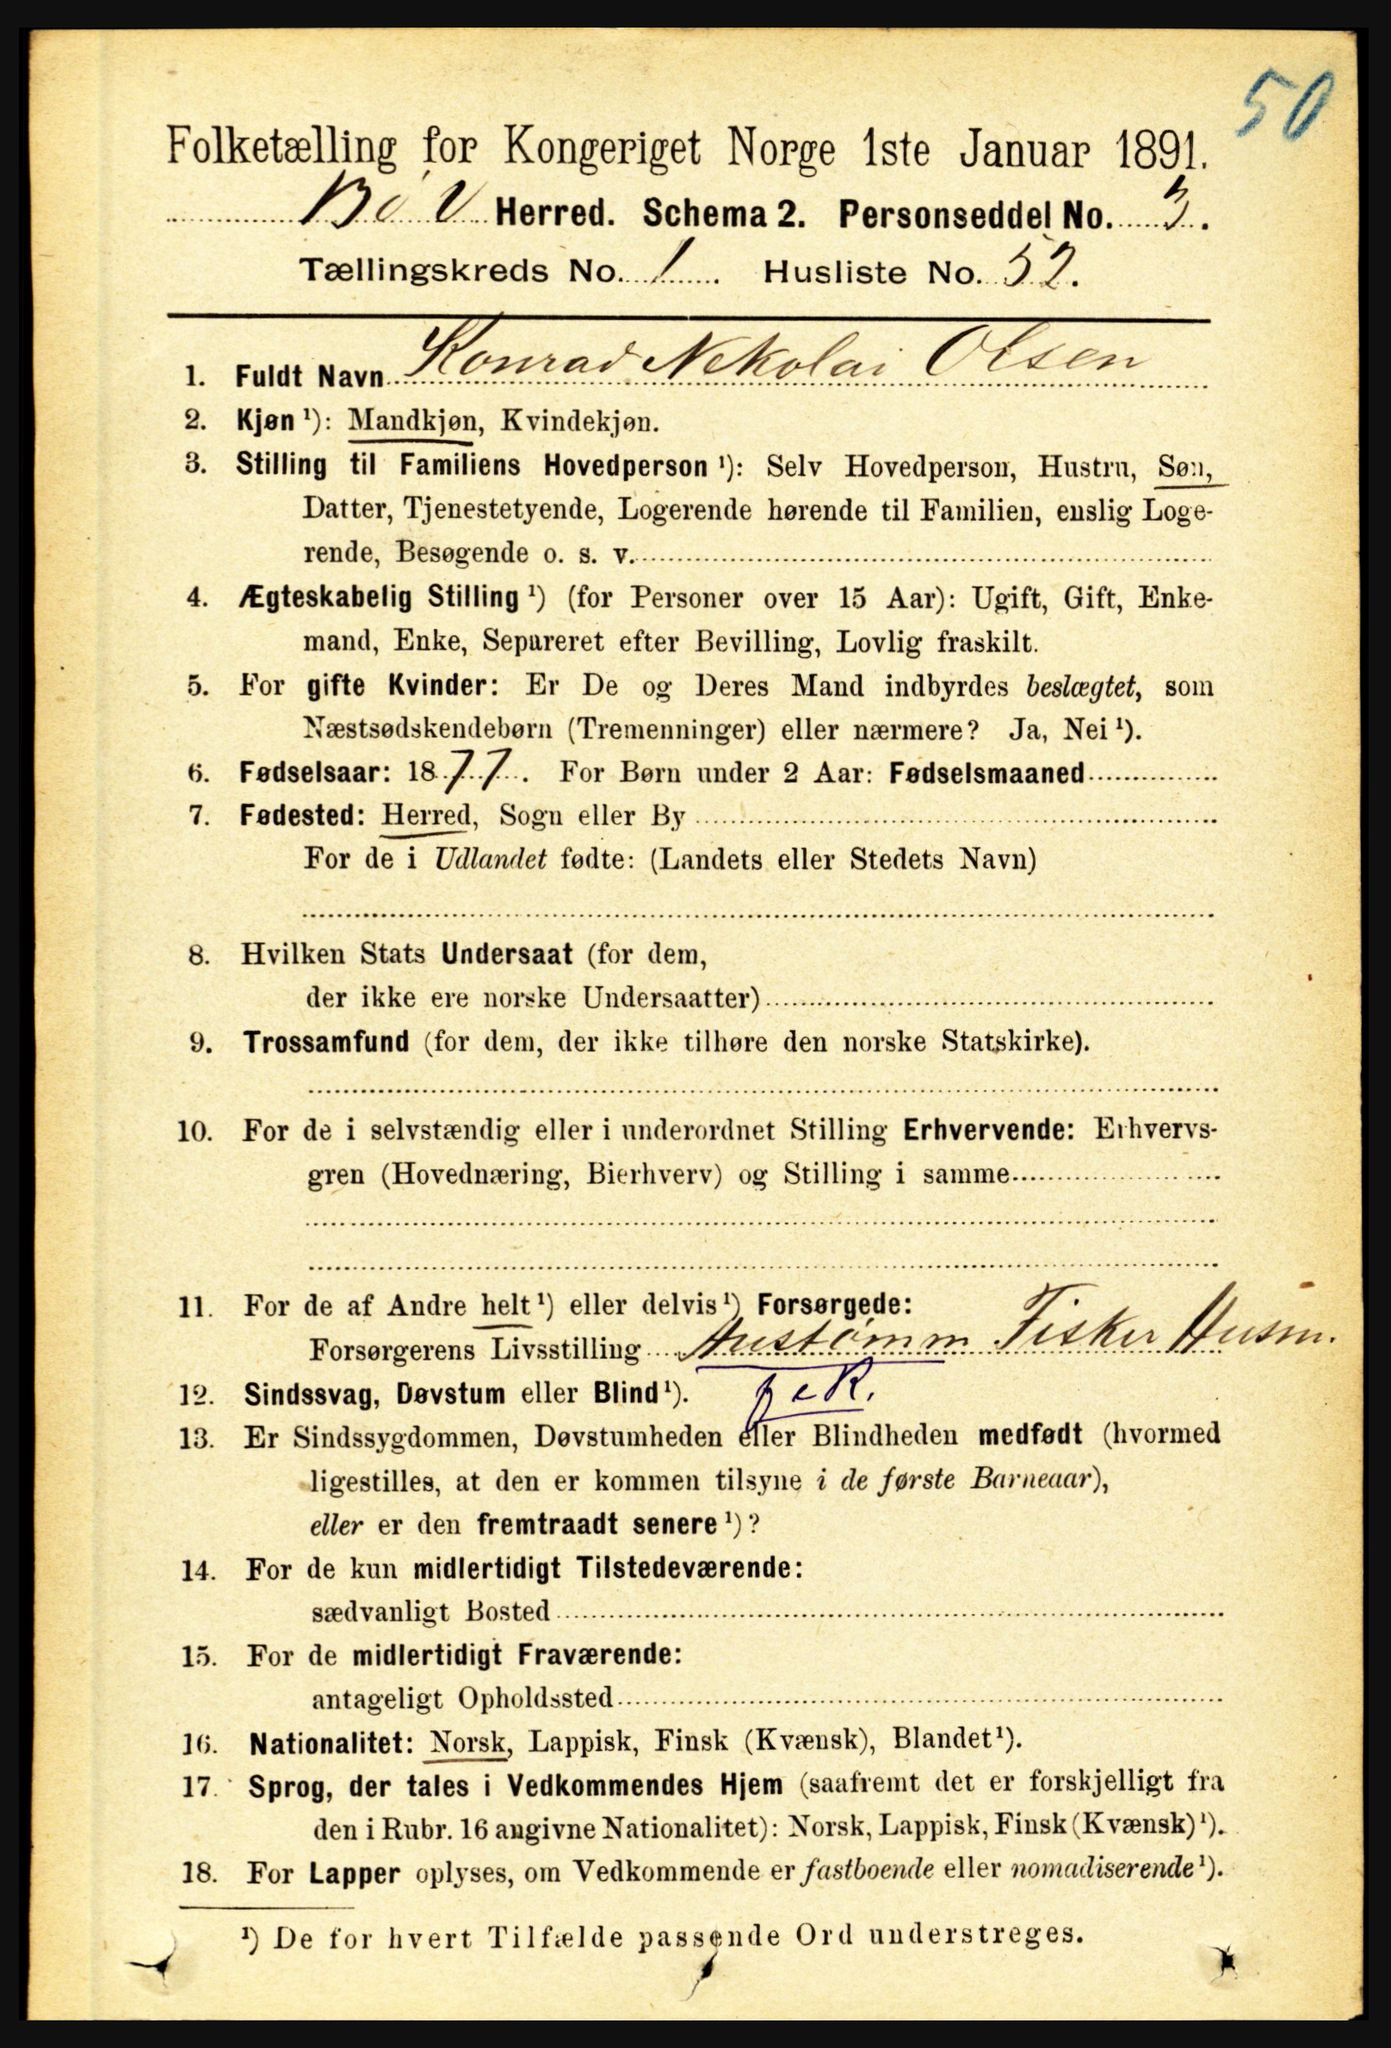 50
Folketælling for Kongeriget Norge 1ste Januar 1891.
Bø V Herred. Schema 2. Personseddel No. 3.
Tællingskreds No. 1. Husliste No. 52.
1. Fuldt Navn Konrad Nekolai Olsen
2. Kjøn ¹): Mandkjøn, Kvindekjøn.
3. Stilling til Familiens Hovedperson ¹): Selv Hovedperson, Hustru, Søn,
Datter, Tjenestetyende, Logerende hørende til Familien, enslig Loge-
rende, Besøgende o. s. v.
4. Ægteskabelig Stilling ¹) (for Personer over 15 Aar): Ugift, Gift, Enke-
mand, Enke, Separeret efter Bevilling, Lovlig fraskilt.
5. For gifte Kvinder: Er De og Deres Mand indbyrdes beslægtet, som
Næstsødskendebørn (Tremenninger) eller nærmere? Ja, Nei ¹).
6. Fødselsaar: 1877. For Børn under 2 Aar: Fødselsmaaned
7. Fødested: Herred, Sogn eller By
For de i Udlandet fødte: (Landets eller Stedets Navn)
8. Hvilken Stats Undersaat (for dem,
der ikke ere norske Undersaatter)
9. Trossamfund (for dem, der ikke tilhøre den norske Statskirke).
10. For de i selvstændig eller i underordnet Stilling Erhvervende: Erhvervs-
gren (Hovednæring, Bierhverv) og Stilling i samme
11. For de af Andre helt ¹) eller delvis ¹) Forsørgede:
Forsørgerens Livsstilling Fisker Husm.
12. Sindssvag, Døvstum eller Blind ¹).
13. Er Sindssygdommen, Døvstumheden eller Blindheden medfødt (hvormed
ligestilles, at den er kommen tilsyne i de første Barneaar),
eller er den fremtraadt senere ¹)?
14. For de kun midlertidigt Tilstedeværende:
sædvanligt Bosted
15. For de midlertidigt Fraværende:
antageligt Opholdssted
16. Nationalitet: Norsk, Lappisk, Finsk (Kvænsk), Blandet ¹).
17. Sprog, der tales i Vedkommendes Hjem (saafremt det er forskjelligt fra
den i Rubr. 16 angivne Nationalitet): Norsk, Lappisk, Finsk (Kvænsk) ¹).
18. For Lapper oplyses, om Vedkommende er fastboende eller nomadiserende ¹).
¹) De for hvert Tilfælde passende Ord understreges.